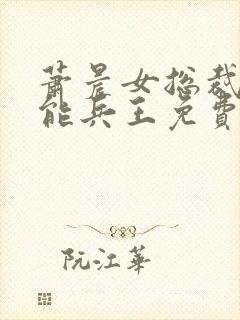 萧晨女总裁
能兵王免費
阮江華